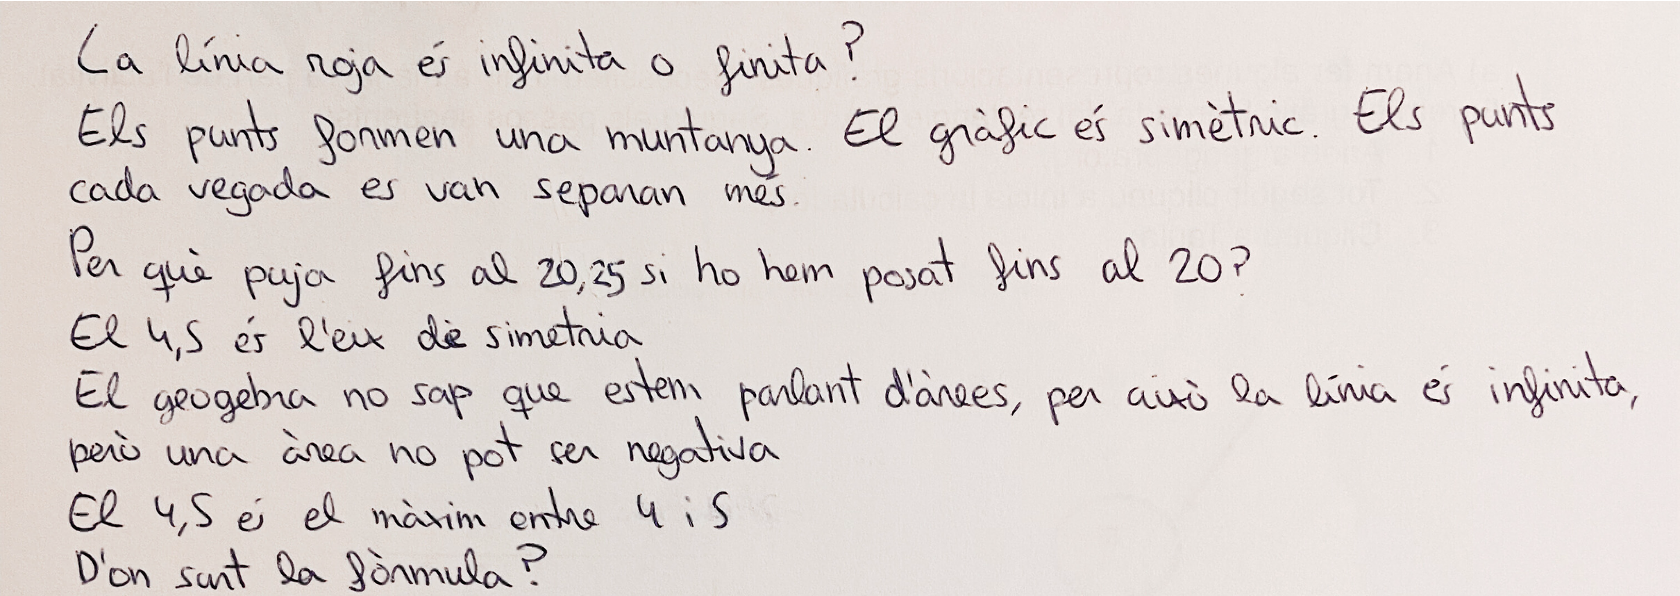 La línia roja és infinita o finita?
Els punts formen una muntanya. El gràfic és simètric. Els punts
cada vegada es van separan més.
Per què puja fins al 20,25 si ho hem posat fins al 20?
El 4,5 és l'eix de simetria
El geogebra no sap que estem parlant d'àrees, per això la línia és infinita,
però una àrea no pot ser negativa
El 4,5 és el màxim entre 4 i 5
D'on surt la fòrmula?